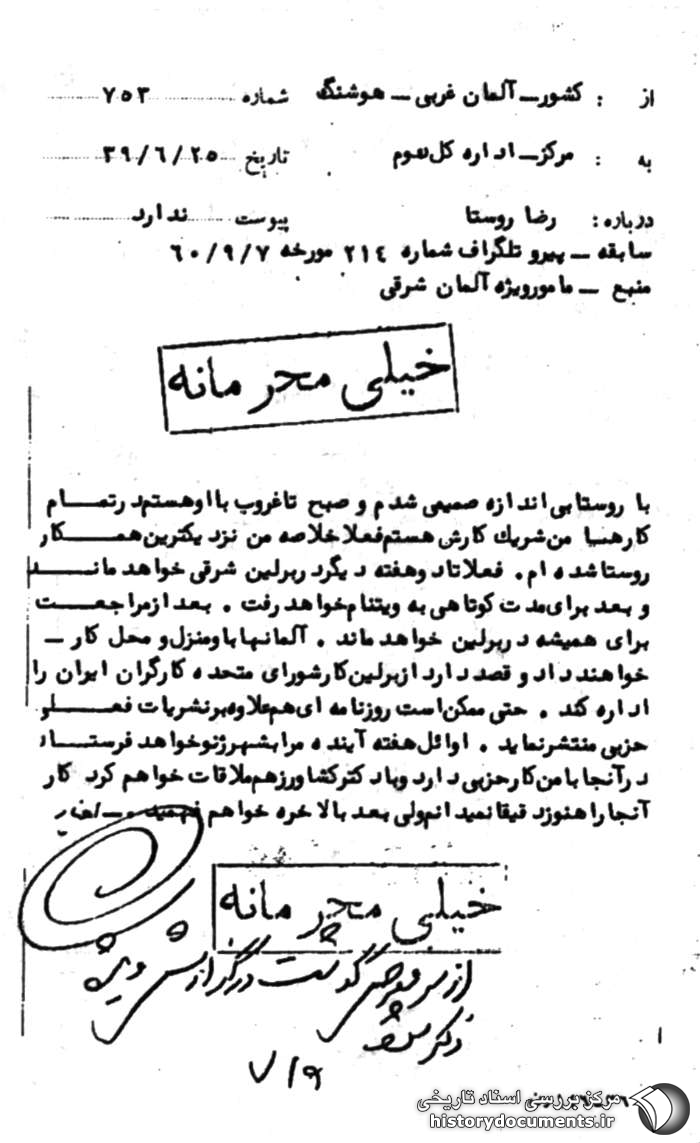 از : کشور ـ آلمان غربی ـ هوشنگ شماره ۷۵۳
به : مرکز ـ اداره کل سوم تاریخ ۳۹/۶/۲۵
درباره : رضا روستا پیوست ندارد
سابقه ـ پیرو تلگراف شماره ۲۱٤ مورخه ۶۰/۹/۷
منبع ـ مامور ویژه آلمان شرقی
خیلی محرمانه
با روستا بی اندازه صمیمی شدم و صبح تا غروب با او هستم در تمام
کارها من شریک کارش هستم فعلا خلاصه من نزدیکترین همکار
روستا شده ام . فعلا تا دو هفته دیگر در برلین شرقی خواهد ماند
و بعد برای مدت کوتاهی به ویتنام خواهد رفت . بعد از مراجعت
برای همیشه در برلین خواهد ماند . آلمانها باو منزل و محل کار ـ
خواهند داد و قصد دارد از برلین کار شورای متحده کارگران ایران را
اداره کند . حتی ممکن است روزنامه ای هم علاوه بر نشریات فعلی
حزبی منتشر نماید . اوائل هفته آینده مرا بشهر ژنو خواهد فرستاد
در آنجا با من کار حزبی دارد و با دکتر کشاورز هم ملاقات خواهم کرد کار
آنجا را هنوز دقیقا نمیدانم ولی بعد بالاخره خواهم فهمید .
خیلی محرمانه
۷/۹
۱
مرکز بررسی اسناد تاریخی
historydocuments.ir